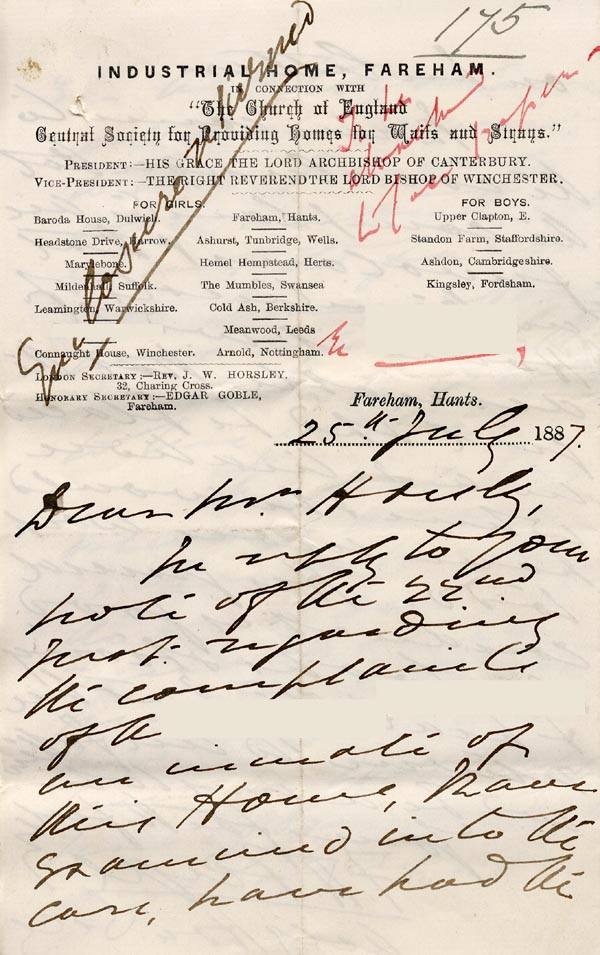 175
INDUSTRIAL HOME, FAREHAM.
IN CONNECTION WITH
"The Church of England
Central Society for Providing Homes for Waifs and Strays."
PRESIDENT:—HIS GRACE THE LORD ARCHBISHOP OF CANTERBURY.
VICE-PRESIDENT:—THE RIGHT REVEREND THE LORD BISHOP OF WINCHESTER.
FOR GIRLS.
Baroda House, Dulwich.
Headstone Drive, Harrow.
Marylebone.
Mildenhall, Suffolk.
Leamington, Warwickshire.
Connaught House, Winchester.
Fareham, Hants.
Ashurst, Tunbridge, Wells.
Hemel Hempstead, Herts.
The Mumbles, Swansea
Cold Ash, Berkshire.
Meanwood, Leeds
Arnold, Nottingham.
FOR BOYS.
Upper Clapton, E.
Standon Farm, Staffordshire.
Ashdon, Cambridgeshire.
Kingsley, Fordsham.
LONDON SECRETARY:—REV. J. W. HORSLEY,
32, Charing Cross.
HONORARY SECRETARY:—EDGAR GOBLE,
Fareham.
Fareham, Hants.
25th July 1887.
Dear Mr. Horsley,
In reply to your
note of the 22nd
inst. regarding
the complaint
of
an inmate of
this Home, have
examined into the
case, have had the